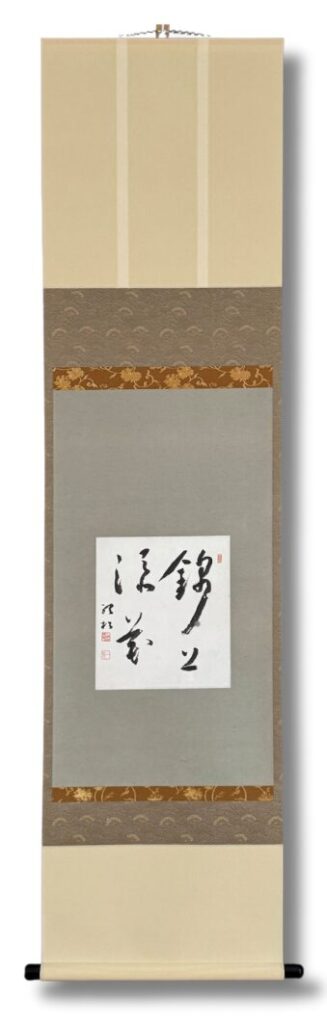 錦上
添花